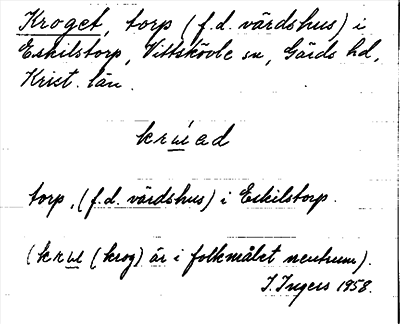 Kroget, torp (f.d. värdshus) i
Eskilstorp, Vittskövle sn, Gärds hd,
Krist. län.
krúad
torp, (f.d. värdshus) i Eskilstorp.
(kru (krog) är i folkmålet neutrum).
I. Ingers 1958.